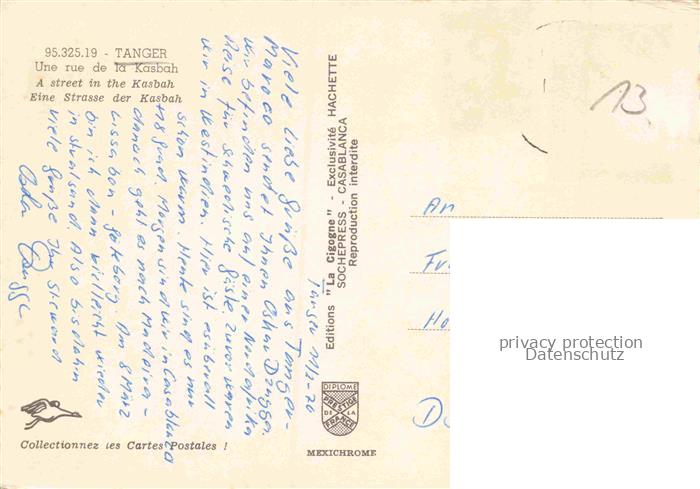 95.325.19 - TANGER
Une rue de la Kasbah
A street in the Kasbah
Eine Strasse der Kasbah
Viele liebe Grüße aus Tanger -
Maroco sendet Ihnen
wir befinden uns auf einer Nordafrika
Reise für schwedische Gäste. Zuvor waren
wir in Westindien. Hier ist es überall
schon warm. Heute sind es nur
18 Grad. Morgen sind wir in Casablanca
danach geht es nach Madeira -
Lissabon - Göteborg. Am 8 März
bin ich dann vielleicht wieder
in Stralsund. Also bis dahin
viele Grüße Ihr Steward
Tanger
-70
Editions "La Cigogne" - Exclusivité HACHETTE
SOCHEPRESS - CASABLANCA
Reproduction interdite
DIPLOME
PRESTIGE
DE LA
FRANCE
MEXICHROME
Collectionnez les Cartes Postales !
13
An
privacy protection
Datenschutz